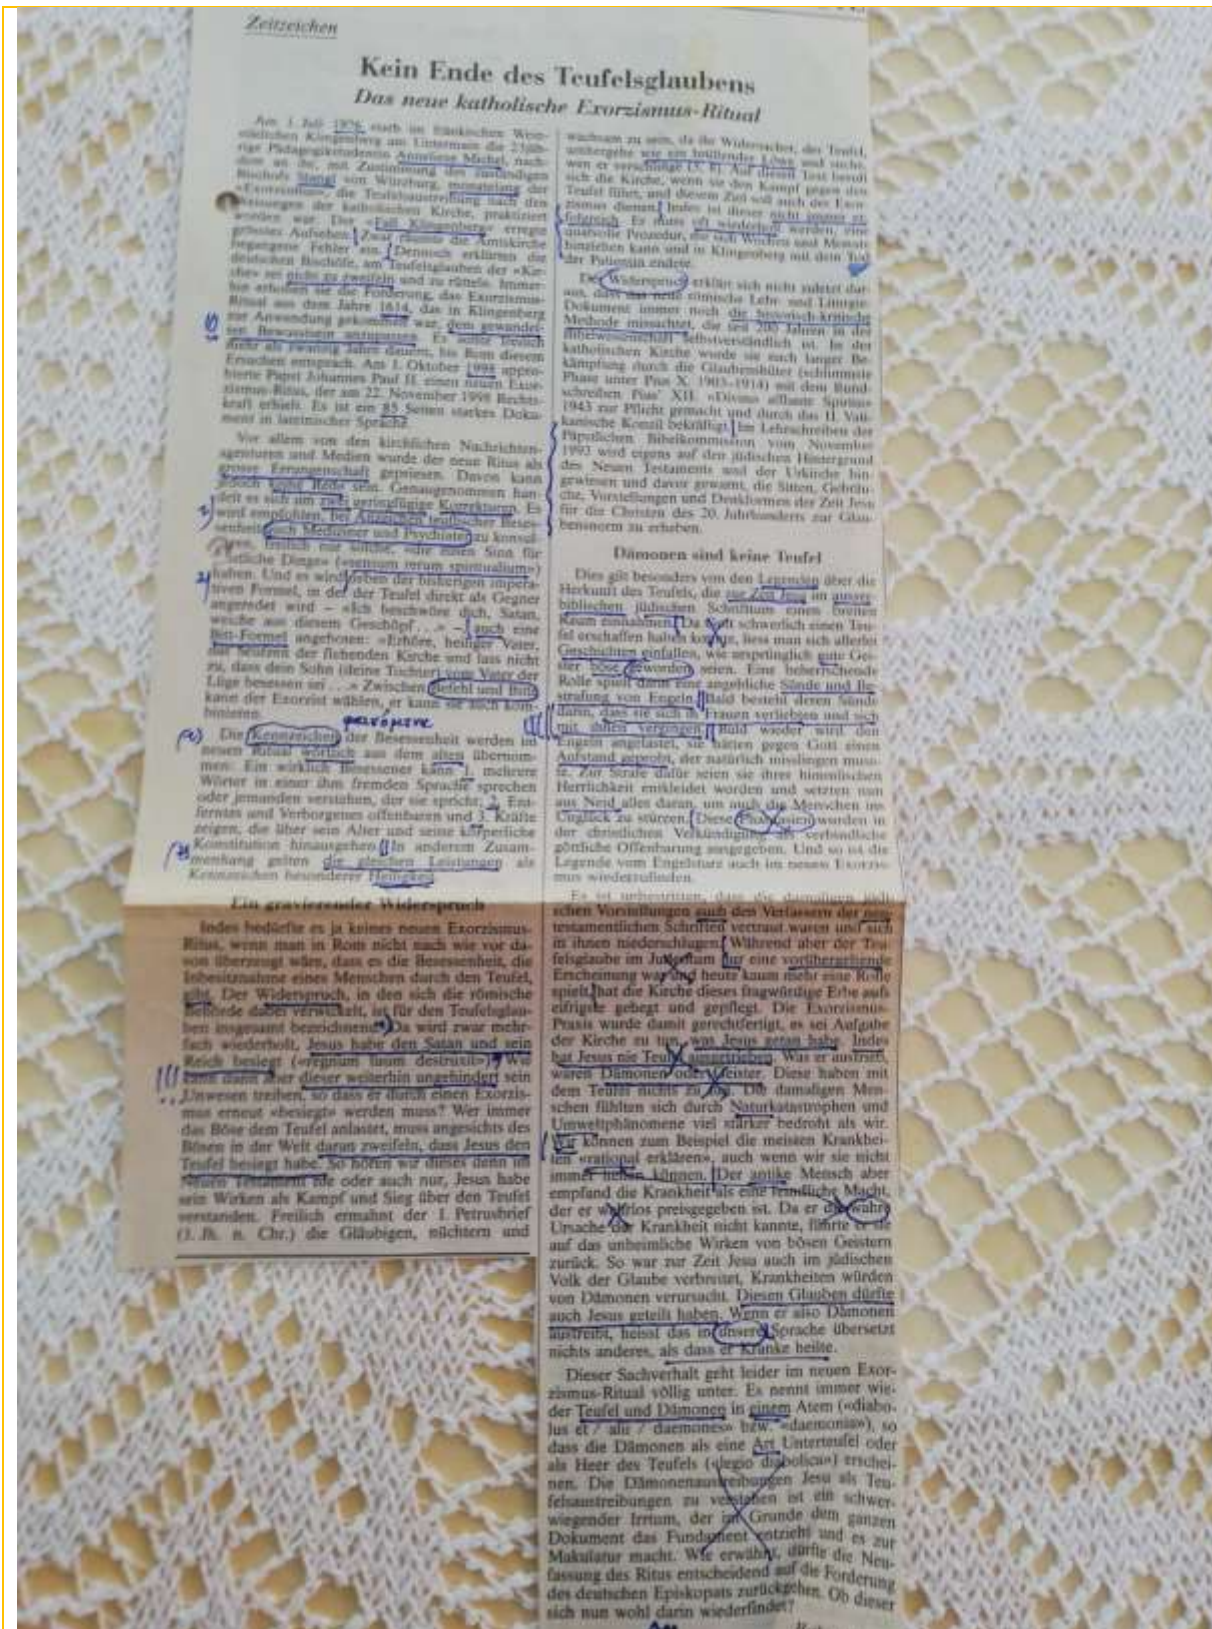 Zeitzeichen
Kein Ende des Teufelsglaubens
Das neue katholische Exorzismus-Ritual
Am 1. Juli 1976 starb im fränkischen Wein-
städtchen Klingenberg am Untermain die 23jäh-
rige Pädagogikstudentin Anneliese Michel, nach-
dem an ihr, mit Zustimmung des zuständigen
Bischofs Stangl von Würzburg, monatelang der
«Exorzismus», die Teufelsaustreibung nach den
Weisungen der katholischen Kirche, praktiziert
worden war. Der «Fall Klingenberg» erregte
grosses Aufsehen. Zwar räumte die Amtskirche
begangene Fehler ein. Dennoch erklärten die
deutschen Bischöfe, am Teufelsglauben der «Kir-
che» sei nicht zu zweifeln und zu rütteln. Immer-
hin erhoben sie die Forderung, das Exorzismus-
Ritual aus dem Jahre 1614, das in Klingenberg
zur Anwendung gekommen war, dem gewandel-
ten Bewusstsein anzupassen. Es sollte freilich
mehr als zwanzig Jahre dauern, bis Rom diesem
Ersuchen entsprach. Am 1. Oktober 1998 appro-
bierte Papst Johannes Paul II. einen neuen Exor-
zismus-Ritus, der am 22. November 1998 Rechts-
kraft erhielt. Es ist ein 85 Seiten starkes Doku-
ment in lateinischer Sprache.
Vor allem von den kirchlichen Nachrichten-
agenturen und Medien wurde der neue Ritus als
grosse Errungenschaft gepriesen. Davon kann
jedoch keine Rede sein. Genaugenommen han-
delt es sich um zwei geringfügige Korrekturen. Es
wird empfohlen, bei Anzeichen teuflischer Beses-
senheit auch Mediziner und Psychiater zu konsul-
tieren, freilich nur solche, «die einen Sinn für
geistliche Dinge» («sensum rerum spiritualium»)
haben. Und es wird neben der bisherigen impera-
tiven Formel, in der der Teufel direkt als Gegner
angeredet wird – «Ich beschwöre dich, Satan,
weiche aus diesem Geschöpf . . .» – auch eine
Bitt-Formel angeboten: «Erhöre, heiliger Vater,
das Seufzen der flehenden Kirche und lass nicht
zu, dass dein Sohn (deine Tochter) vom Vater der
Lüge besessen sei . . .» Zwischen Befehl und Bitte
kann der Exorzist wählen, er kann sie auch kom-
binieren.
φαινόμενα
Die Kennzeichen der Besessenheit werden im
neuen Ritual wörtlich aus dem alten übernom-
men: Ein wirklich Besessener kann 1. mehrere
Wörter in einer ihm fremden Sprache sprechen
oder jemanden verstehen, der sie spricht; 2. Ent-
ferntes und Verborgenes offenbaren und 3. Kräfte
zeigen, die über sein Alter und seine körperliche
Konstitution hinausgehen. In anderem Zusam-
menhang gelten die gleichen Leistungen als
Kennzeichen besonderer Heiligkeit.
Ein gravierender Widerspruch
Indes bedürfte es ja keines neuen Exorzismus-
Ritus, wenn man in Rom nicht nach wie vor da-
von überzeugt wäre, dass es die Besessenheit, die
Inbesitznahme eines Menschen durch den Teufel,
gibt. Der Widerspruch, in den sich die römische
Behörde dabei verwickelt, ist für den Teufelsglau-
ben insgesamt bezeichnend. Da wird zwar mehr-
fach wiederholt, Jesus habe den Satan und sein
Reich besiegt («regnum tuum destruxit»). Wie
kann dann aber dieser weiterhin ungehindert sein
Unwesen treiben, so dass er durch einen Exorzis-
mus erneut «besiegt» werden muss? Wer immer
das Böse dem Teufel anlastet, muss angesichts des
Bösen in der Welt daran zweifeln, dass Jesus den
Teufel besiegt habe. So hören wir dieses denn im
Neuen Testament nie oder auch nur, Jesus habe
sein Wirken als Kampf und Sieg über den Teufel
verstanden. Freilich ermahnt der 1. Petrusbrief
(3. Jh. n. Chr.) die Gläubigen, nüchtern und
wachsam zu sein, da ihr Widersacher, der Teufel,
umhergehe wie ein brüllender Löwe und suche,
wen er verschlinge (5, 8). Auf diesen Text beruft
sich die Kirche, wenn sie den Kampf gegen den
Teufel führt, und diesem Ziel soll auch der Exor-
zismus dienen. Indes ist dieser nicht immer er-
folgreich. Er muss oft wiederholt werden, eine
qualvolle Prozedur, die sich Wochen und Monate
hinziehen kann und in Klingenberg mit dem Tod
der Patientin endete.
Der Widerspruch erklärt sich nicht zuletzt dar-
aus, dass das neue römische Lehr- und Liturgie-
Dokument immer noch die historisch-kritische
Methode missachtet, die seit 200 Jahren in der
Bibelwissenschaft selbstverständlich ist. In der
katholischen Kirche wurde sie nach langer Be-
kämpfung durch die Glaubenshüter (schlimmste
Phase unter Pius X. 1903–1914) mit dem Rund-
schreiben Pius' XII. «Divino afflante Spiritu»
1943 zur Pflicht gemacht und durch das II. Vati-
kanische Konzil bekräftigt. Im Lehrschreiben der
Päpstlichen Bibelkommission vom November
1993 wird eigens auf den jüdischen Hintergrund
des Neuen Testaments und der Urkirche hin-
gewiesen und davor gewarnt, die Sitten, Gebräu-
che, Vorstellungen und Denkformen der Zeit Jesu
für die Christen des 20. Jahrhunderts zur Glau-
bensnorm zu erheben.
Dämonen sind keine Teufel
Dies gilt besonders von den Legenden über die
Herkunft des Teufels, die zur Zeit Jesu im ausser-
biblischen jüdischen Schrifttum einen breiten
Raum einnahmen. Da Gott schwerlich einen Teu-
fel erschaffen haben konnte, liess man sich allerlei
Geschichten einfallen, wie ursprünglich gute Gei-
ster böse geworden seien. Eine beherrschende
Rolle spielt darin eine angebliche Sünde und Be-
strafung von Engeln. Bald besteht deren Sünde
darin, dass sie sich in Frauen verliebten und sich
mit ihnen vergingen. Bald wieder wird den
Engeln angelastet, sie hätten gegen Gott einen
Aufstand geprobt, der natürlich misslingen muss-
te. Zur Strafe dafür seien sie ihrer himmlischen
Herrlichkeit entkleidet worden und setzten nun
aus Neid alles daran, um auch die Menschen ins
Unglück zu stürzen. Diese Phantasien wurden in
der christlichen Verkündigung als verbindliche
göttliche Offenbarung ausgegeben. Und so ist die
Legende vom Engelsturz auch im neuen Exorzis-
mus wiederzufinden.
Es ist unbestritten, dass die damaligen jüdi-
schen Vorstellungen auch den Verfassern der neu-
testamentlichen Schriften vertraut waren und sich
in ihnen niederschlugen. Während aber der Teu-
felsglaube im Judentum nur eine vorübergehende
Erscheinung war und heute kaum mehr eine Rolle
spielt, hat die Kirche dieses fragwürdige Erbe aufs
eifrigste gehegt und gepflegt. Die Exorzismus-
Praxis wurde damit gerechtfertigt, es sei Aufgabe
der Kirche zu tun, was Jesus getan habe. Indes
hat Jesus nie Teufel ausgetrieben. Was er austrieb,
waren Dämonen oder Geister. Diese haben mit
dem Teufel nichts zu tun. Die damaligen Men-
schen fühlten sich durch Naturkatastrophen und
Umweltphänomene viel stärker bedroht als wir.
Wir können zum Beispiel die meisten Krankhei-
ten «rational erklären», auch wenn wir sie nicht
immer heilen können. Der antike Mensch aber
empfand die Krankheit als eine feindliche Macht,
der er wehrlos preisgegeben ist. Da er die wahre
Ursache der Krankheit nicht kannte, führte er sie
auf das unheimliche Wirken von bösen Geistern
zurück. So war zur Zeit Jesu auch im jüdischen
Volk der Glaube verbreitet, Krankheiten würden
von Dämonen verursacht. Diesen Glauben dürfte
auch Jesus geteilt haben. Wenn er also Dämonen
austreibt, heisst das in unsere Sprache übersetzt
nichts anderes, als dass er Kranke heilte.
Dieser Sachverhalt geht leider im neuen Exor-
zismus-Ritual völlig unter. Es nennt immer wie-
der Teufel und Dämonen in einem Atem («diabo-
lus et / alii / daemones» bzw. «daemonia»), so
dass die Dämonen als eine Art Unterteufel oder
als Heer des Teufels («legio diabolica») erschei-
nen. Die Dämonenaustreibungen Jesu als Teu-
felsaustreibungen zu verstehen ist ein schwer-
wiegender Irrtum, der im Grunde dem ganzen
Dokument das Fundament entzieht und es zur
Makulatur macht. Wie erwähnt, dürfte die Neu-
fassung des Ritus entscheidend auf die Forderung
des deutschen Episkopats zurückgehen. Ob dieser
sich nun wohl darin wiederfindet?